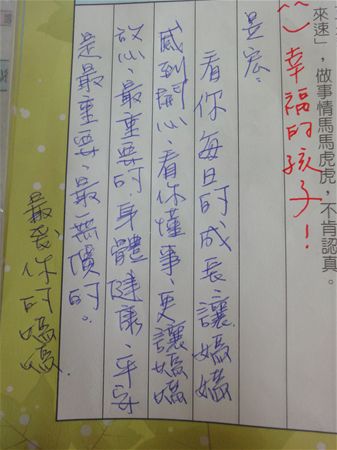 來速」，做事情馬馬虎虎，不肯認真。
^^幸福的孩子！
昱宏：
看你每日的成長、讓媽媽
感到開心、看你懂事、更讓媽媽
放心、最重要的身體健康、平安
是最重要、最無價的。
最愛你的媽媽